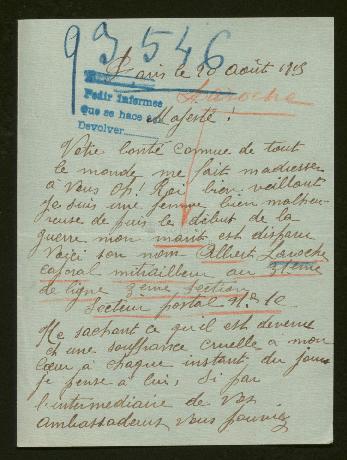 93546
Paris le 20 août 1915
Pedir informes
que se hace
Devolver
Laroche
Majesté!
Votre bonté connue de tout
le monde me fait m'adresser
à Vous Oh! Roi bien veillant
je suis une femme bien malheu-
reuse de puis le début de la
guerre mon mari est disparu
Voici son nom Albert Laroche
caporal mitrailleur au
de ligne 3ème section
Secteur postal No 10
Ne sachant ce qu'il est devenu
c'h une souffrance cruelle a mon
cœur à chaque instant du jour
je pense à lui, Si par
l'intermediaire de Vos
ambassadeurs vous pouviez